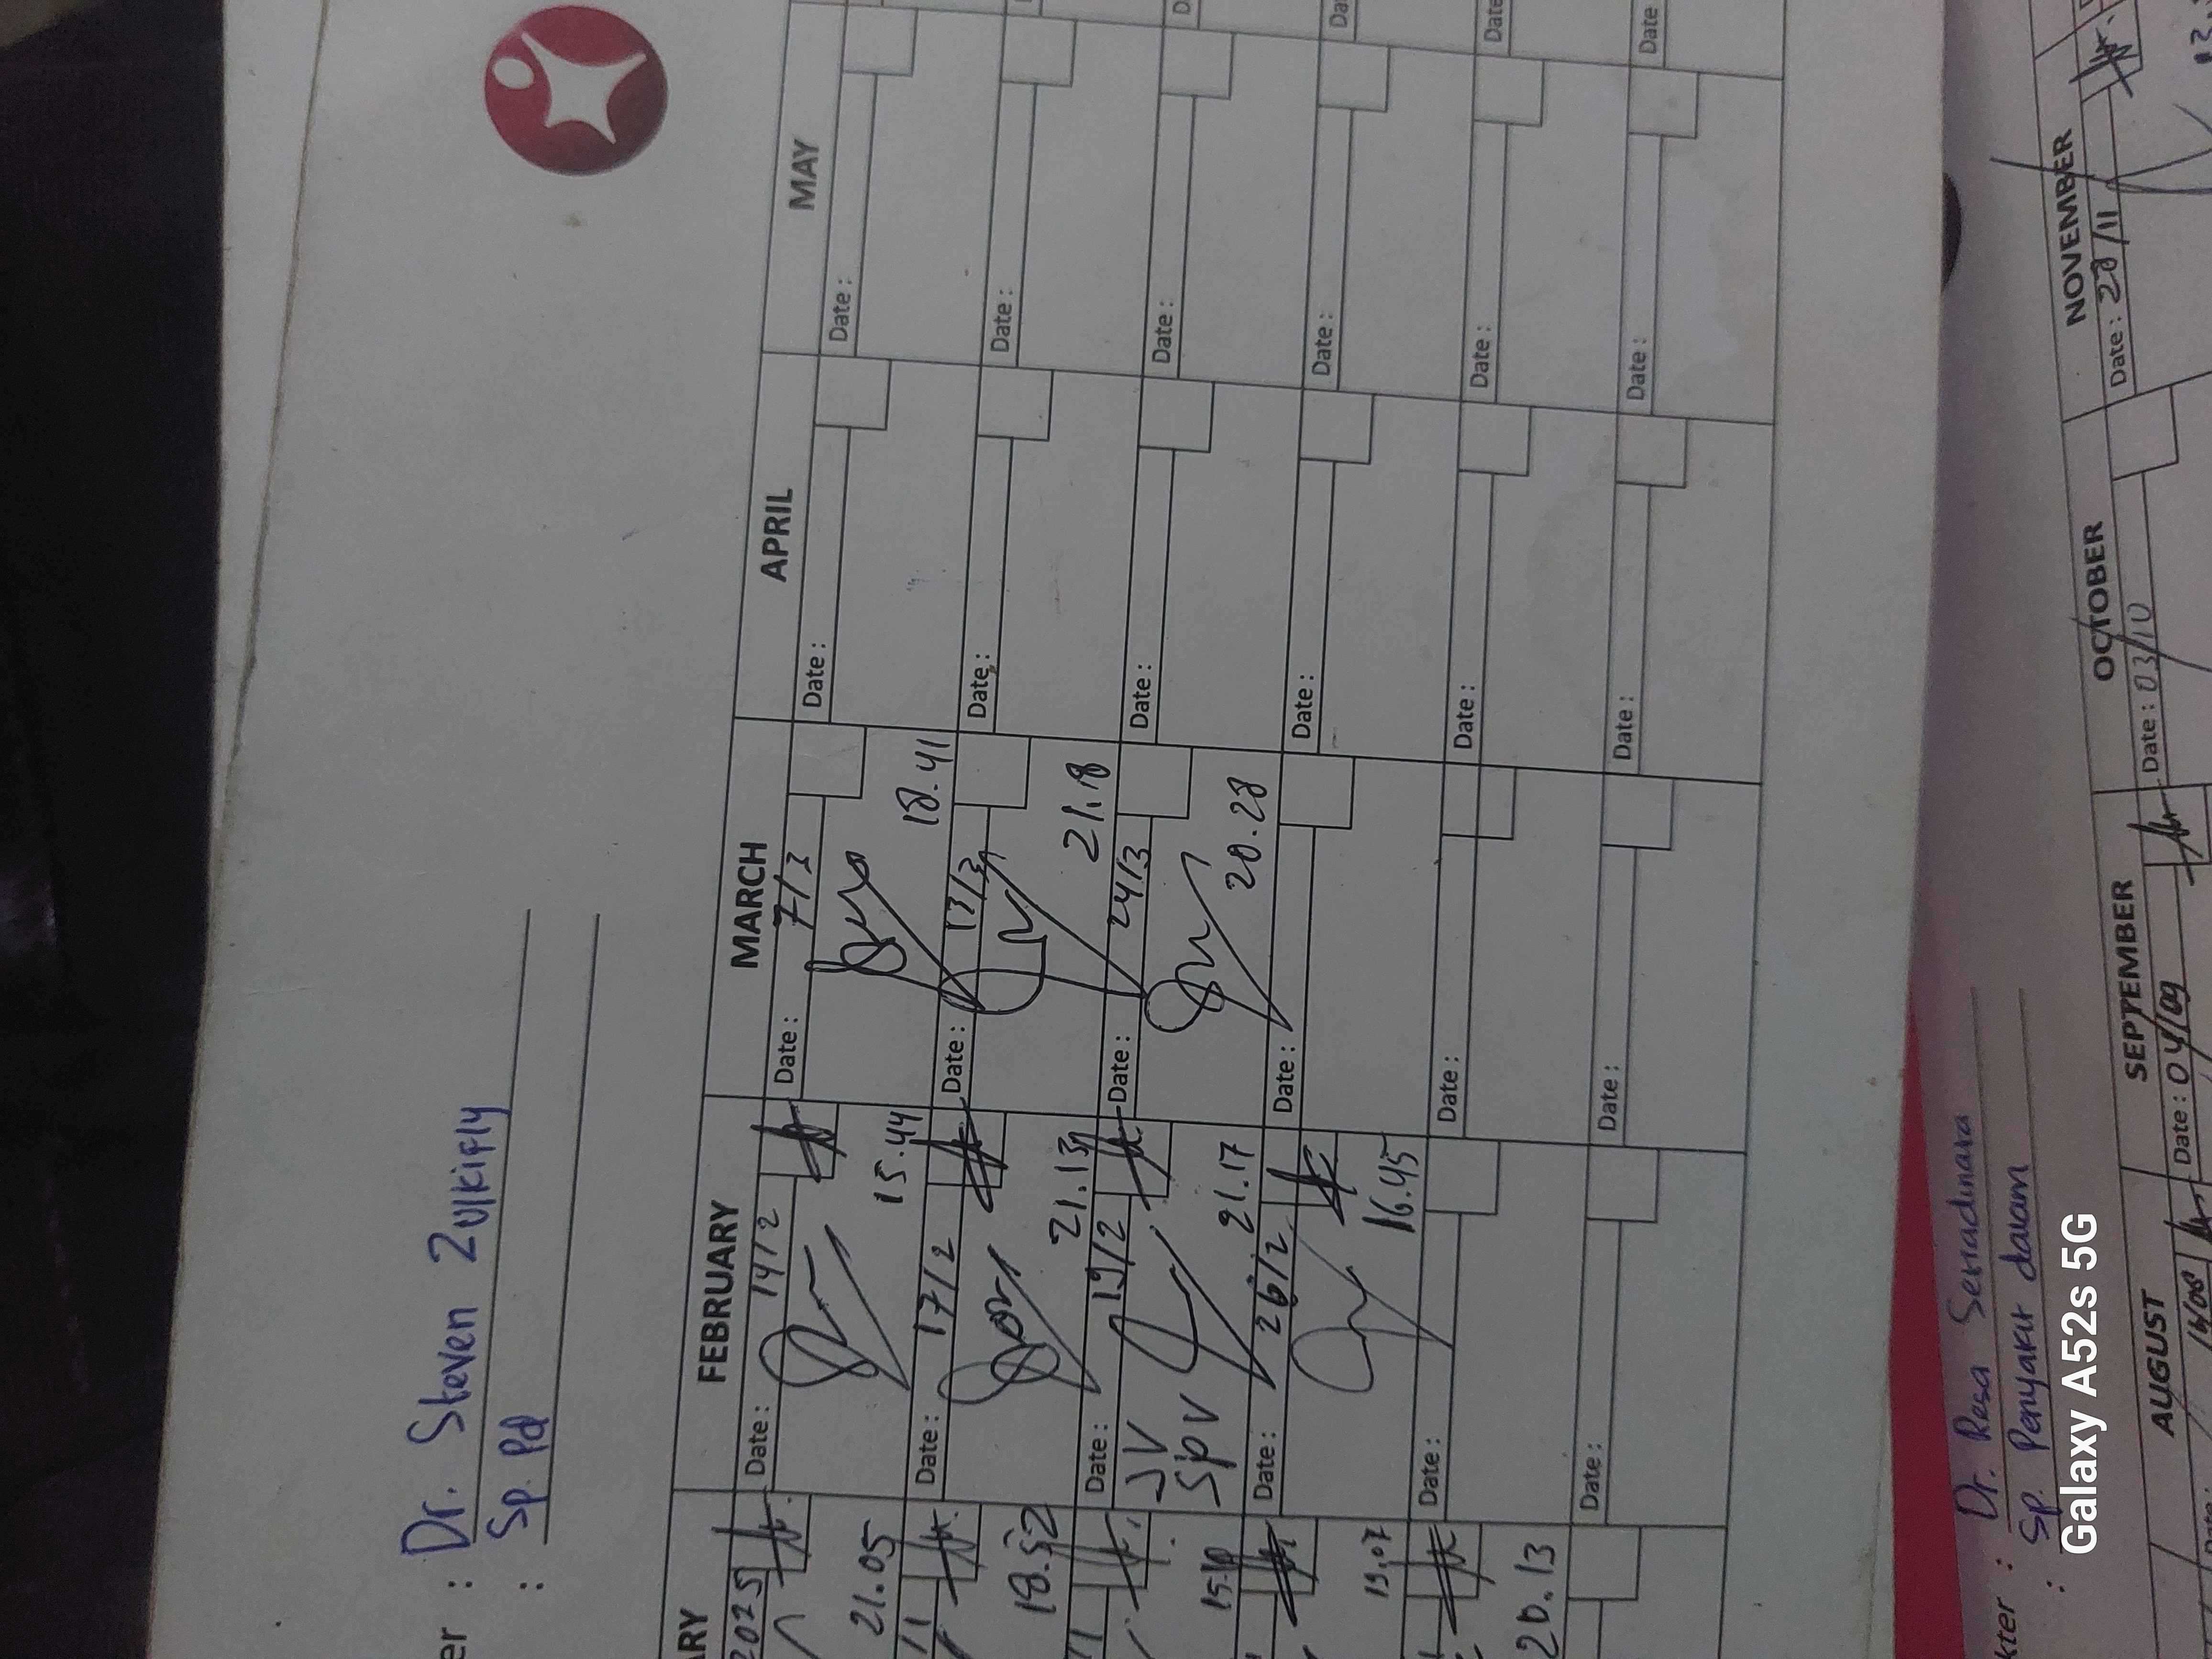 er : Dr. Steven Zulkifly
: Sp. Pd
ARY FEBRUARY MARCH APRIL MAY
2025 Date : 14/2 Date : 7/3 Date : Date :
21.05 15.44 18.41
Date : 17/2 Date : 13/3 Date : Date :
18.52 21.13 21.18
Date : 19/2 Date : 24/3 Date : Date :
JV
SPV
21.17 20.28
Date : 26/2 Date : Date : Date : Date
19.07 16.45
Date : Date : Date : Date : Date
20.13
Date : Date : Date : Date : Date
kter : Dr. Resa Setiadinata
: Sp. Penyakit dalam
AUGUST SEPTEMBER OCTOBER NOVEMBER
Date : 04/09 Date : 03/10 Date : 28/11
Galaxy A52s 5G